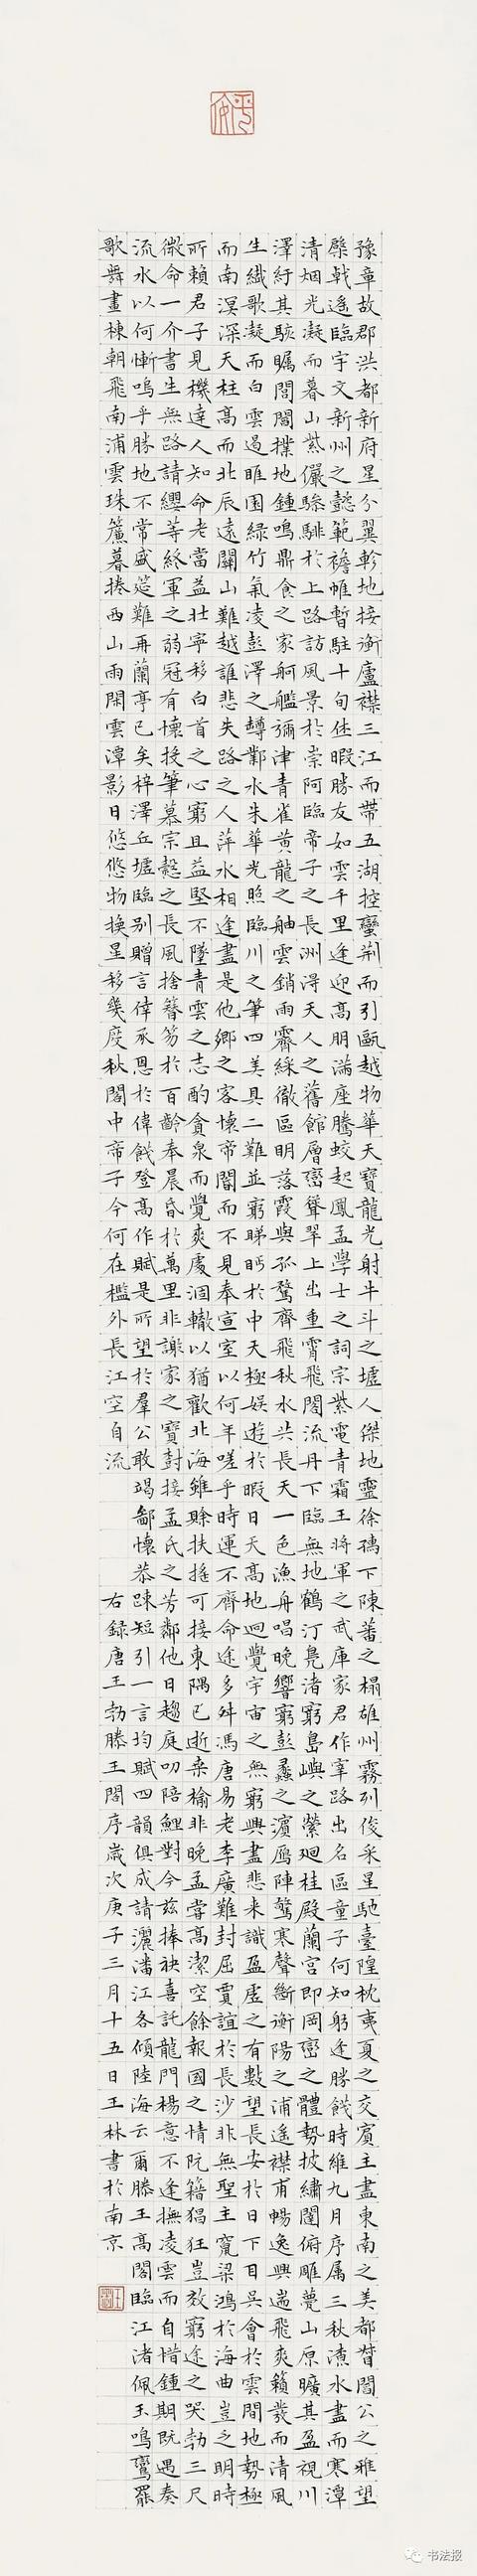 平安
豫章故郡洪都新府星分翼軫地接衡廬襟三江而帶五湖控蠻荆而引甌越物華天寶龍光射牛斗之墟人傑地靈徐孺下陳蕃之榻雄州霧列俊采星馳臺隍枕夷夏之交賓主盡東南之美都督閻公之雅望
棨戟遥臨宇文新州之懿範襜帷暫駐十旬休暇勝友如雲千里逢迎高朋滿座騰蛟起鳳孟學士之詞宗紫電青霜王將軍之武庫家君作宰路出名區童子何知躬逢勝餞時維九月序属三秋潦水盡而寒潭
清烟光凝而暮山紫儼驂騑於上路訪風景於崇阿臨帝子之長洲得天人之舊館層巒聳翠上出重霄飛閣流丹下臨無地鶴汀鳧渚窮島嶼之縈廻桂殿蘭宫即岡巒之體勢披繡闥俯雕甍山原曠其盈視川
澤紆其駭矚閭閻撲地鍾鳴鼎食之家舸艦彌津青雀黄龍之舳雲銷雨霽綵徹區明落霞與孤鶩齊飛秋水共長天一色漁舟唱晚響窮彭蠡之濱雁陣驚寒聲斷衡陽之浦遥襟甫暢逸興遄飛爽籟發而清風
生纖歌凝而白雲遏睢園緑竹氣凌彭澤之罇鄴水朱華光照臨川之筆四美具二難並窮睇眄於中天極娱遊於暇日天高地迥覺宇宙之無窮興盡悲来識盈虚之有數望長安於日下目吴會於雲間地勢極
而南溟深天柱高而北辰遠關山難越誰悲失路之人萍水相逢盡是他鄉之客懷帝閽而不見奉宣室以何年嗟乎時運不齊命途多舛馮唐易老李廣難封屈賈誼於長沙非無聖主竄梁鴻於海曲豈乏明時
所賴君子見機達人知命老當益壯寧移白首之心窮且益堅不墜青雲之志酌貪泉而覺爽處涸轍以猶歡北海雖賒扶摇可接東隅已逝桑榆非晚孟嘗高潔空餘報國之情阮籍猖狂豈效窮途之哭勃三尺
微命一介書生無路請纓等終軍之弱冠有懷投筆慕宗慤之長風捨簪笏於百齡奉晨昏於萬里非謝家之寶樹接孟氏之芳鄰他日趨庭叨陪鯉對今兹捧袂喜託龍門楊意不逢撫凌雲而自惜鍾期既遇奏
流水以何慚嗚乎勝地不常盛筵難再蘭亭已矣梓澤丘墟臨别贈言倖承恩於偉餞登高作賦是所望於羣公敢竭鄙懷恭疎短引一言均賦四韻俱成請灑潘江各傾陸海云爾滕王高閣臨江渚佩玉鳴鸞罷
歌舞畫棟朝飛南浦雲珠簾暮捲西山雨閑雲潭影日悠悠物換星移幾度秋閣中帝子今何在檻外長江空自流
右録唐王勃滕王閣序歲次庚子三月十五日王林書於南京
书法报